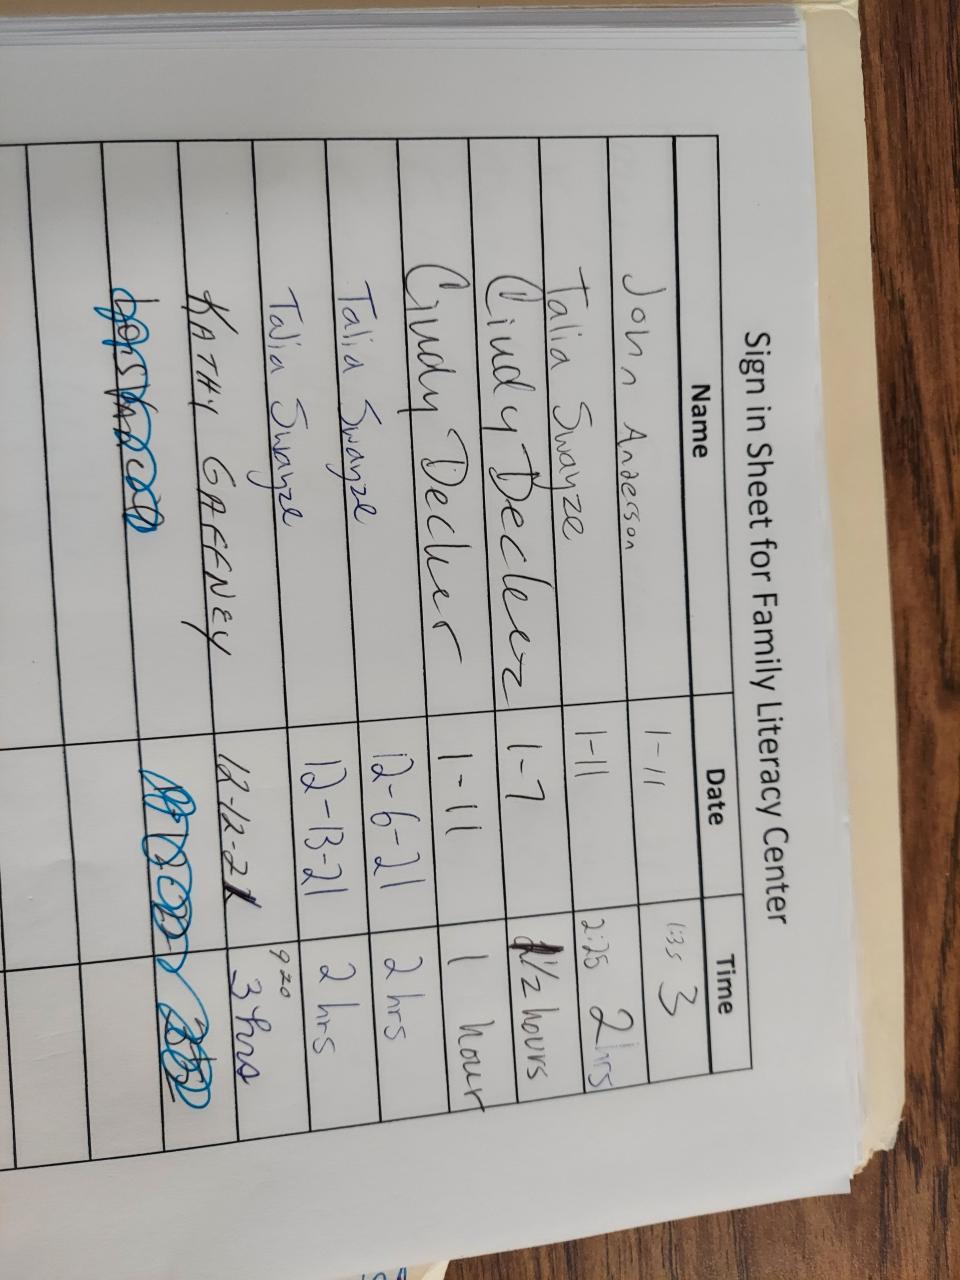 Sign in Sheet for Family Literacy Center
Name Date Time
John Anderson 1-11 1:35 3
Talia Swayze 1-11 2:25 2hrs
Cindy Decker 1-7 1/2 hours
Cindy Decker 1-11 1 hour
Talia Swayze 12-6-21 2 hrs
Talia Swayze 12-13-21 2 hrs
KATHY GAFFNEY 12-12-21 920 3 hrs